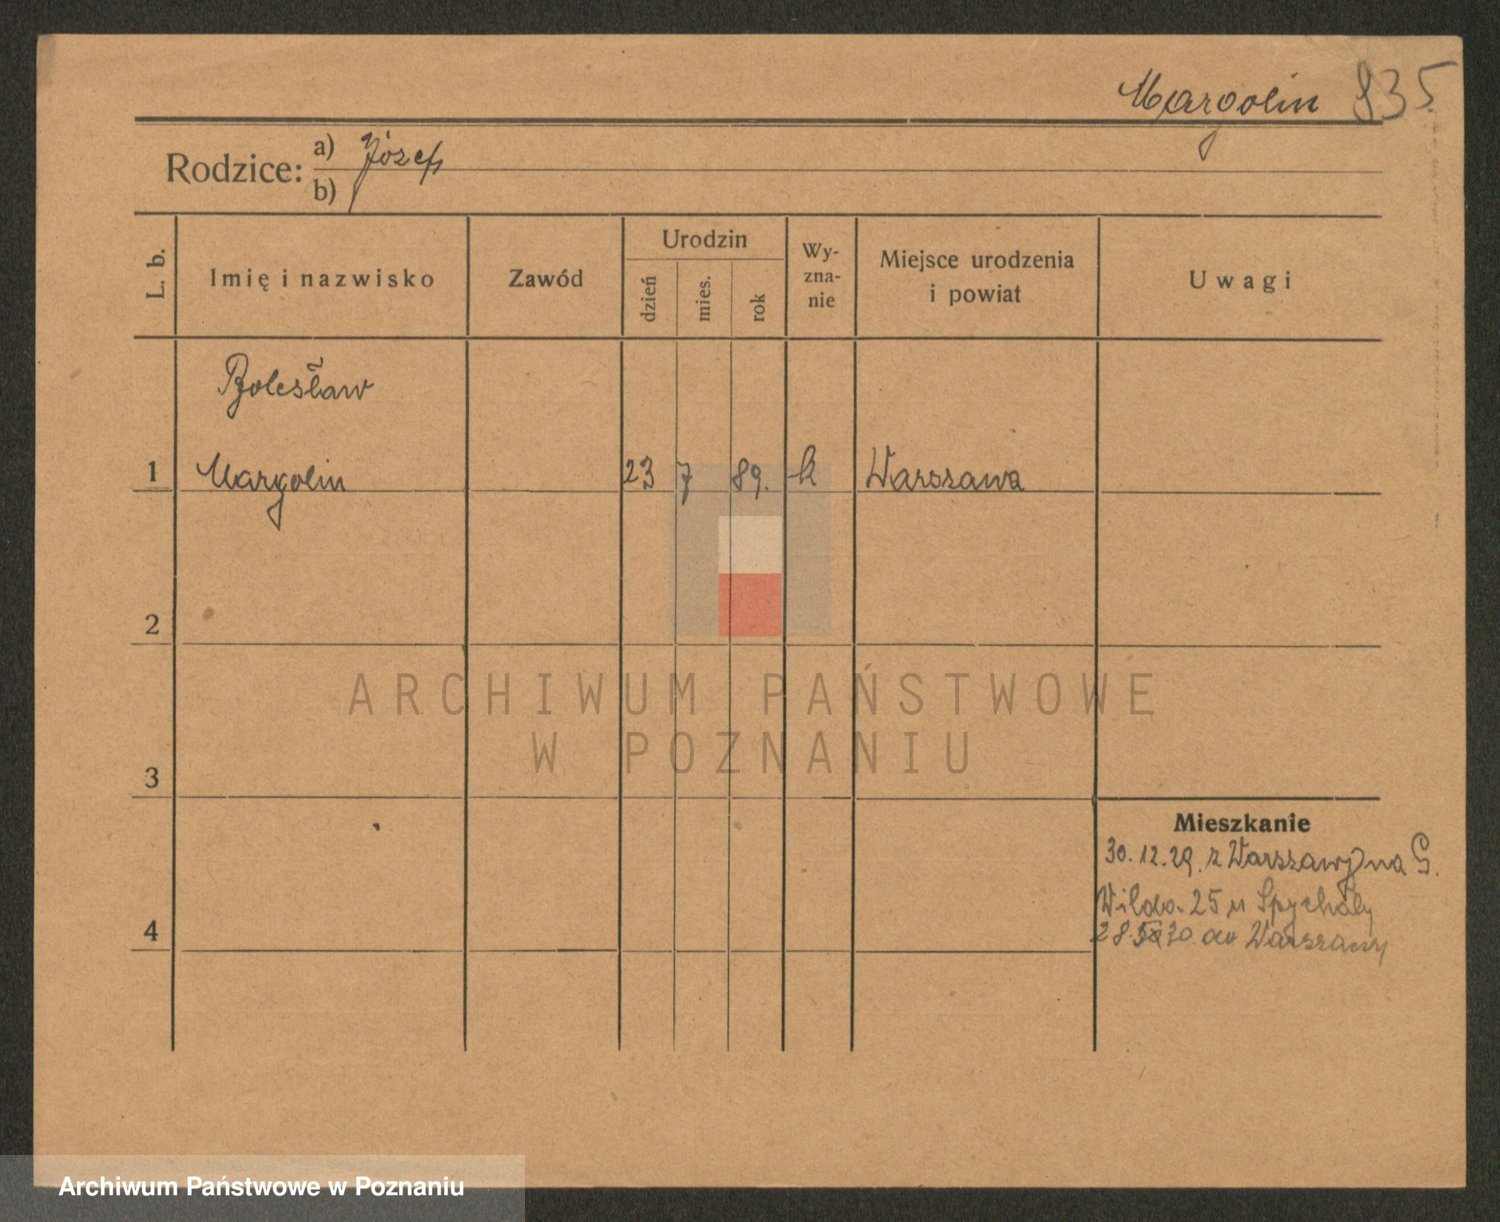 Margolin 835
Rodzice: a) Józef
b)
L. b.
Imię i nazwisko
Zawód
Urodzin
dzień
mies.
rok
Wy-
zna-
nie
Miejsce urodzenia
i powiat
Uwagi
Bolesław
1 Margolin 23 7 89. k Warszawa
2
3
4
Mieszkanie
30.12.29. z Warszawy na G.
Wilda 25 u Spychały
28. 30. do Warszawy
ARCHIWUM PAŃSTWOWE
W POZNANIU
Archiwum Państwowe w Poznaniu